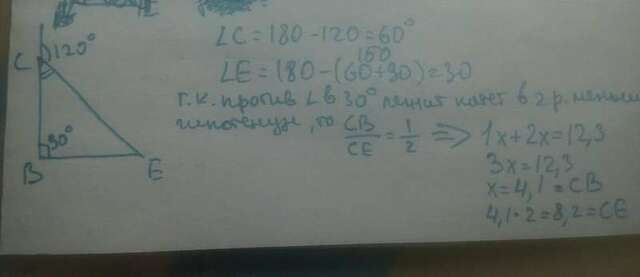 ∠C = 180 - 120 = 60°
150
∠E = 180 - (60+90) = 30
т.к. против ∠ в 30° лежит катет в 2 р. меньш
гипотенузе, то CB/CE = 1/2 ⇒ 1x + 2x = 12,3
3x = 12,3
x = 4,1 = CB
4,1 · 2 = 8,2 = CE
C 120°
90°
B E